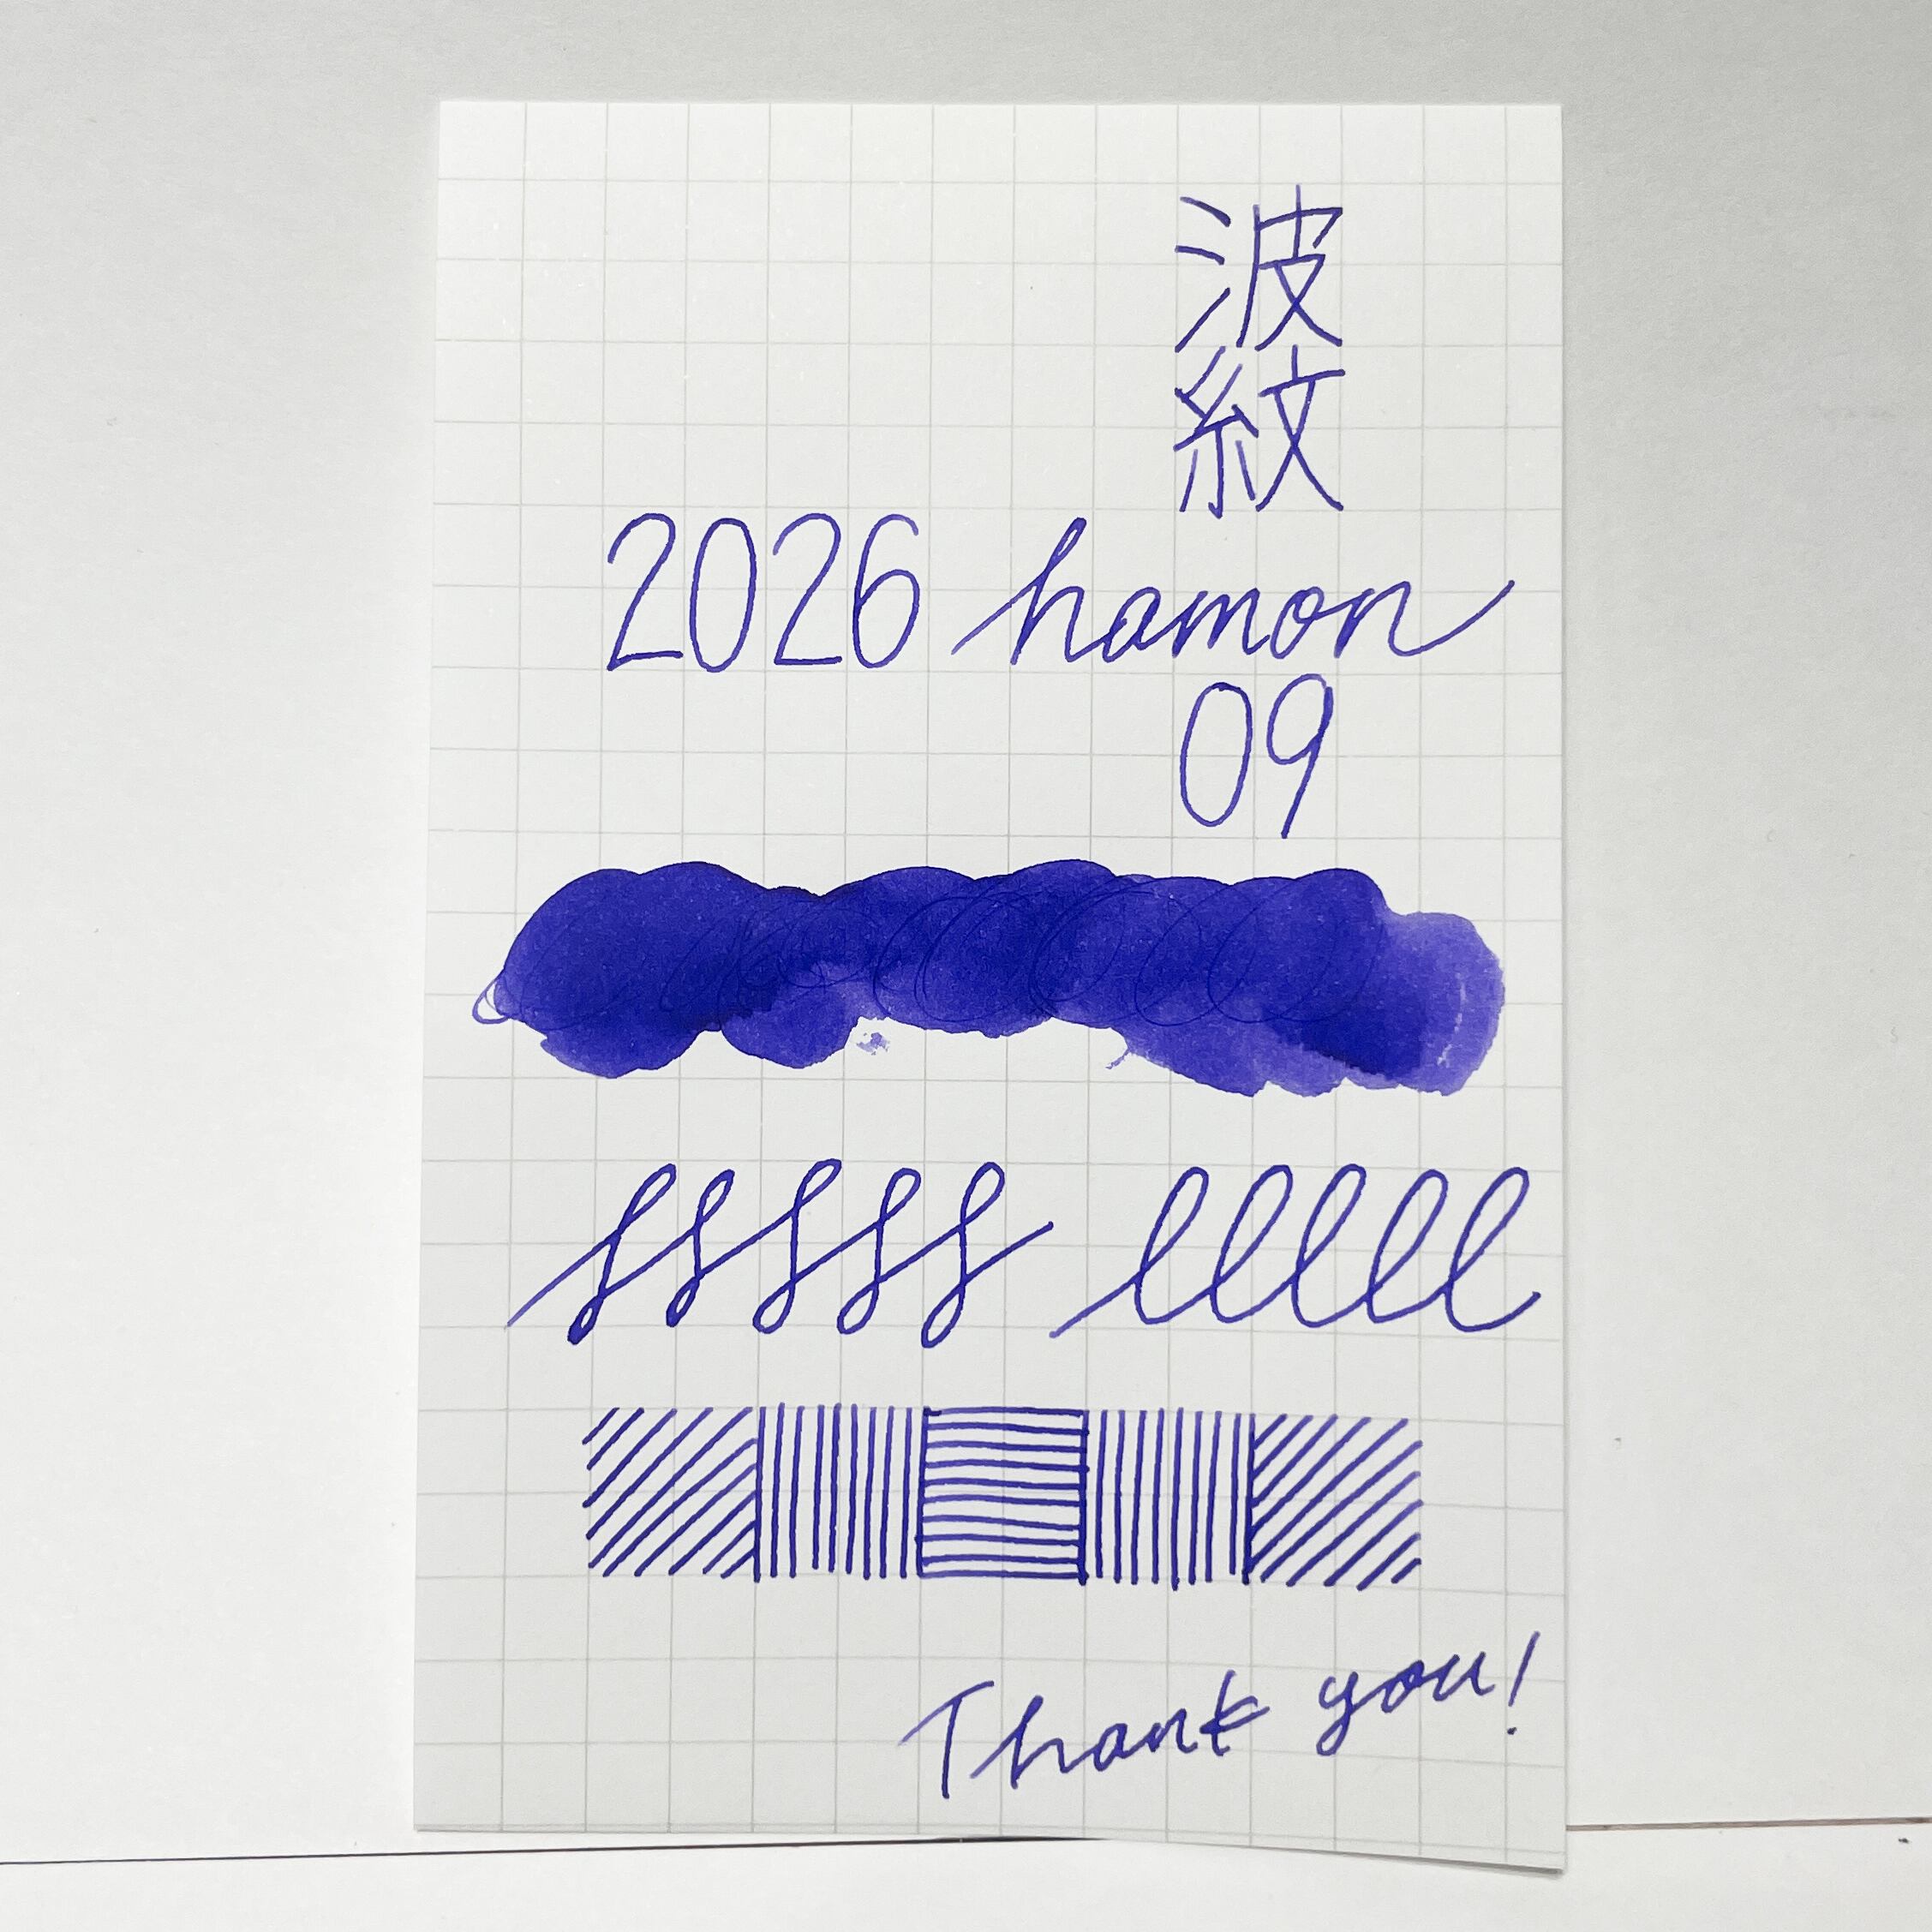 波紋
2026 hamon
09
sssss lllll
Thank you!